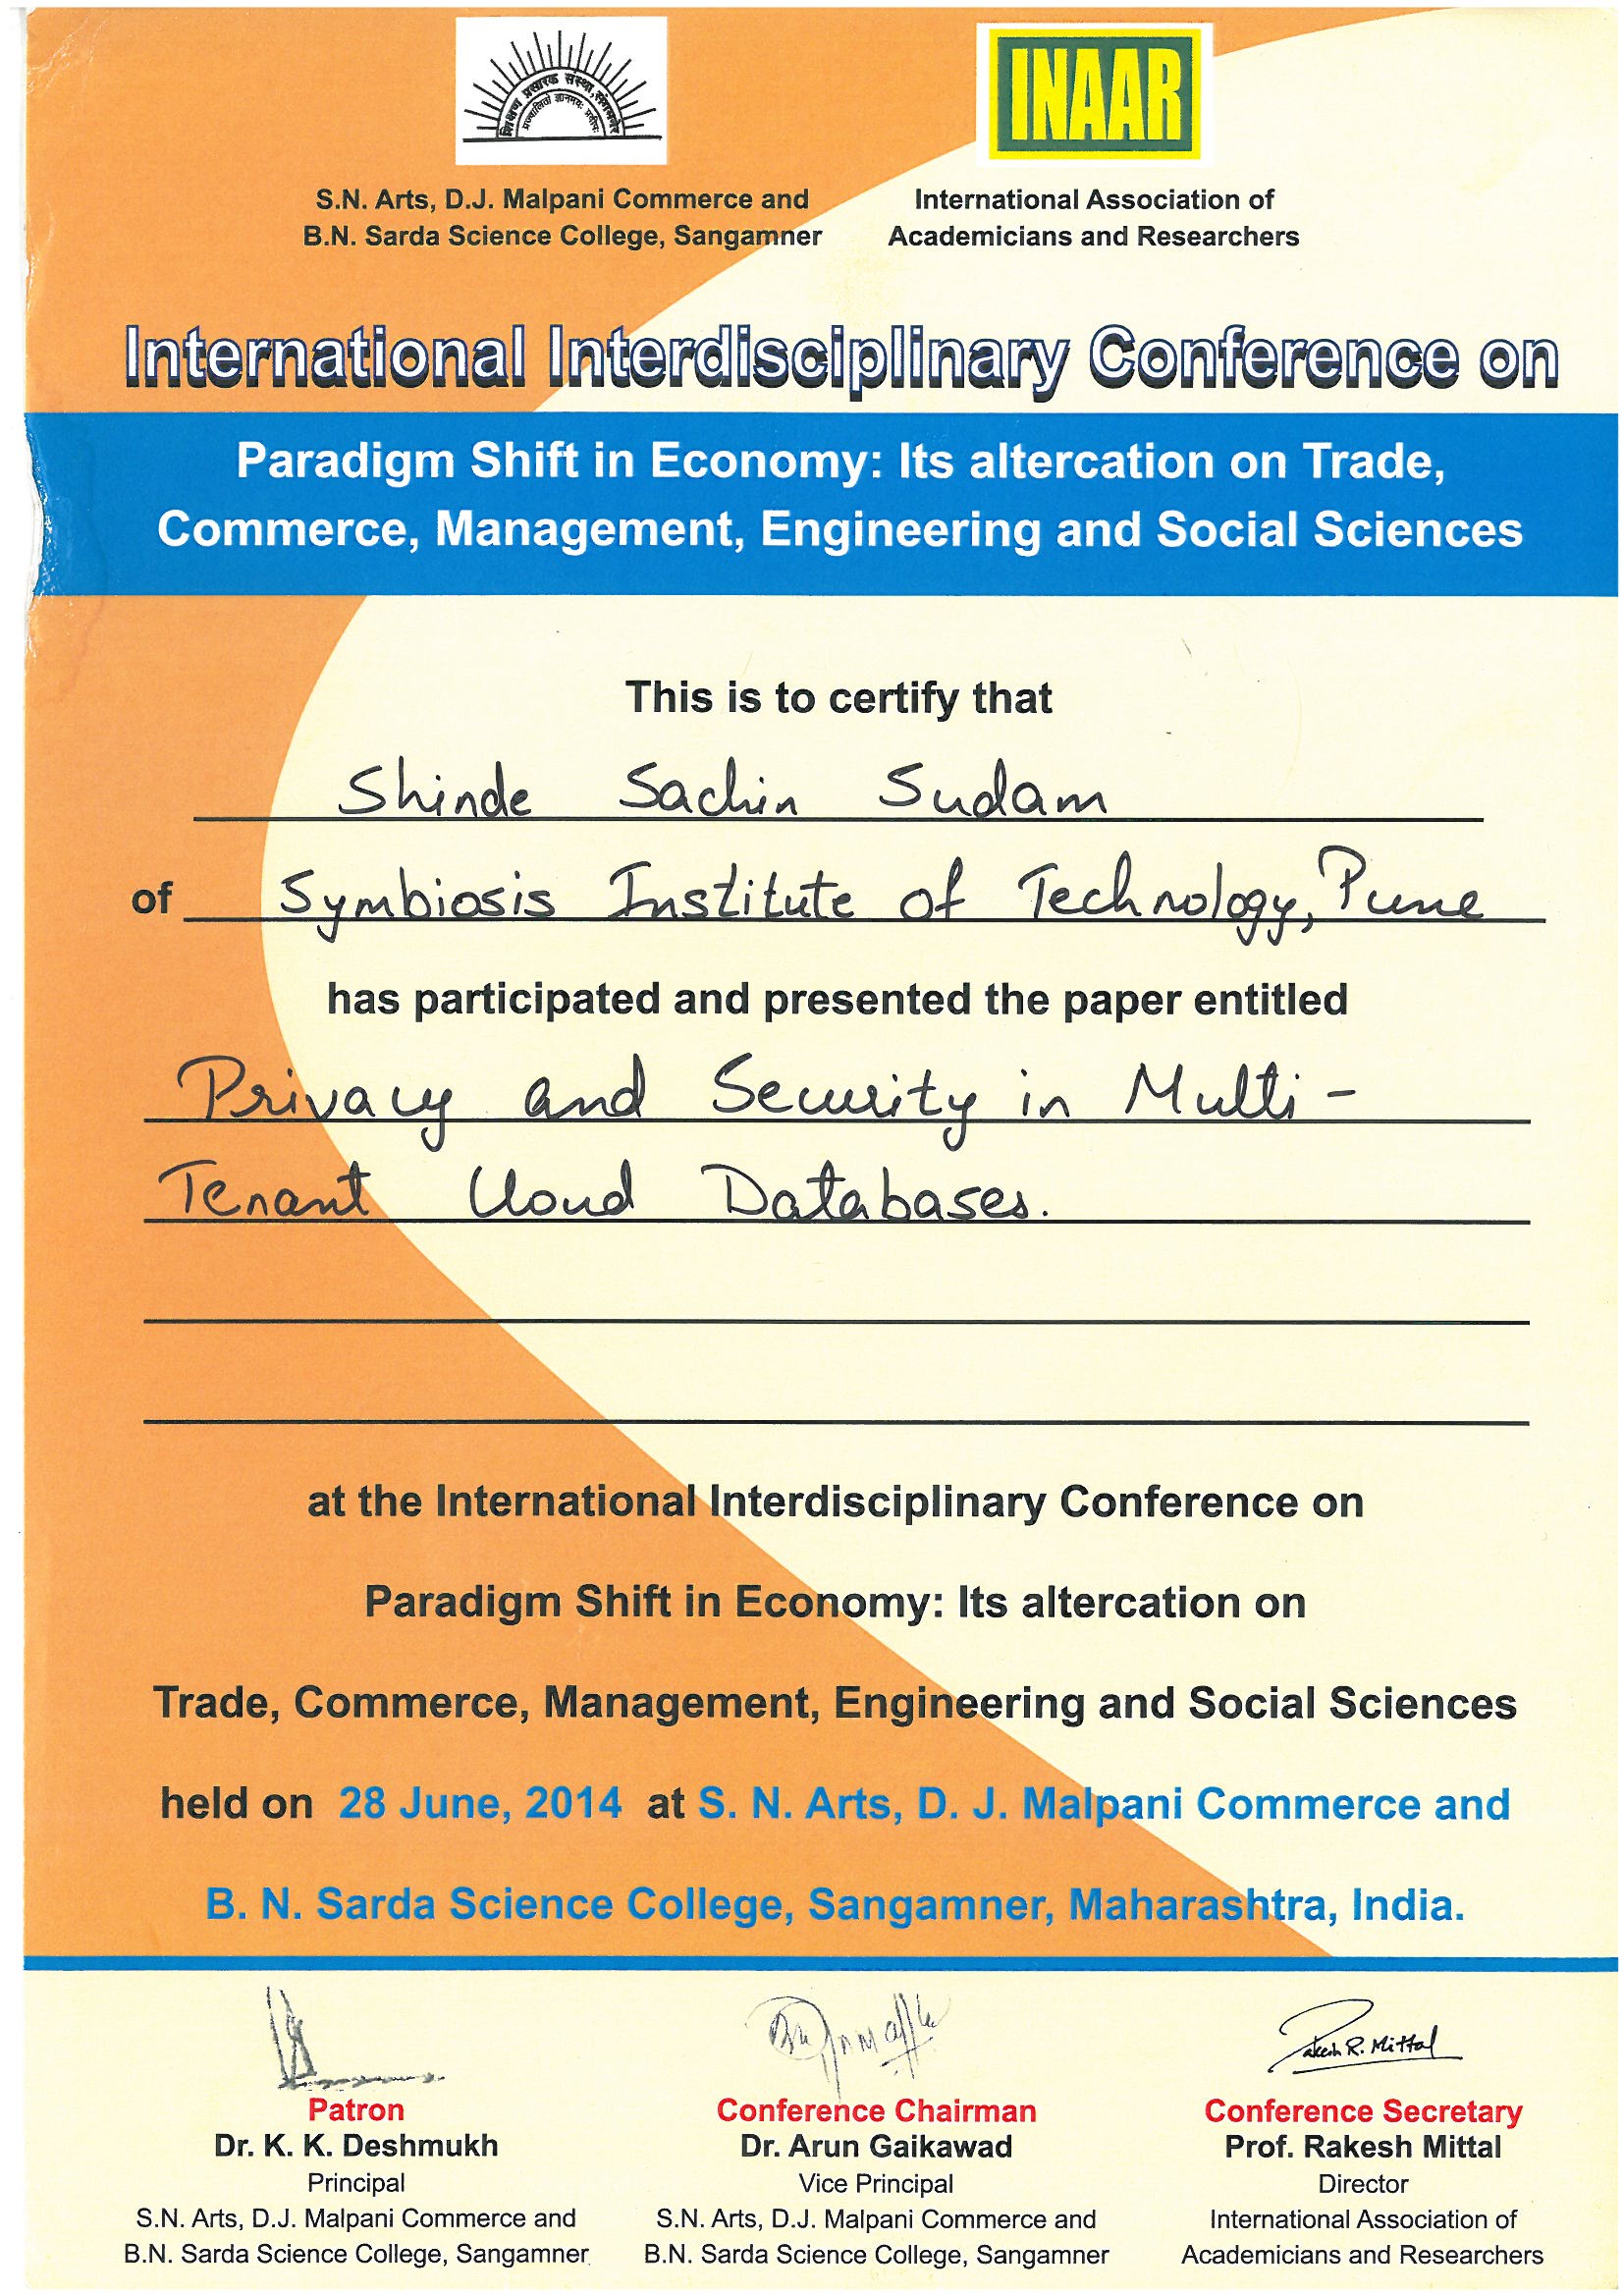 शिक्षण प्रसारक संस्था, संगमनेर
प्रज्वालितो ज्ञानमयः प्रदीपः
INAAR
S.N. Arts, D.J. Malpani Commerce and
B.N. Sarda Science College, Sangamner
International Association of
Academicians and Researchers
International Interdisciplinary Conference on
Paradigm Shift in Economy: Its altercation on Trade,
Commerce, Management, Engineering and Social Sciences
This is to certify that
Shinde Sachin Sudam
of Symbiosis Institute of Technology, Pune
has participated and presented the paper entitled
Privacy and Security in Multi-
Tenant Cloud Databases.
at the International Interdisciplinary Conference on
Paradigm Shift in Economy: Its altercation on
Trade, Commerce, Management, Engineering and Social Sciences
held on 28 June, 2014 at S. N. Arts, D. J. Malpani Commerce and
B. N. Sarda Science College, Sangamner, Maharashtra, India.
Rakesh R. Mittal
Patron
Dr. K. K. Deshmukh
Principal
S.N. Arts, D.J. Malpani Commerce and
B.N. Sarda Science College, Sangamner
Conference Chairman
Dr. Arun Gaikawad
Vice Principal
S.N. Arts, D.J. Malpani Commerce and
B.N. Sarda Science College, Sangamner
Conference Secretary
Prof. Rakesh Mittal
Director
International Association of
Academicians and Researchers